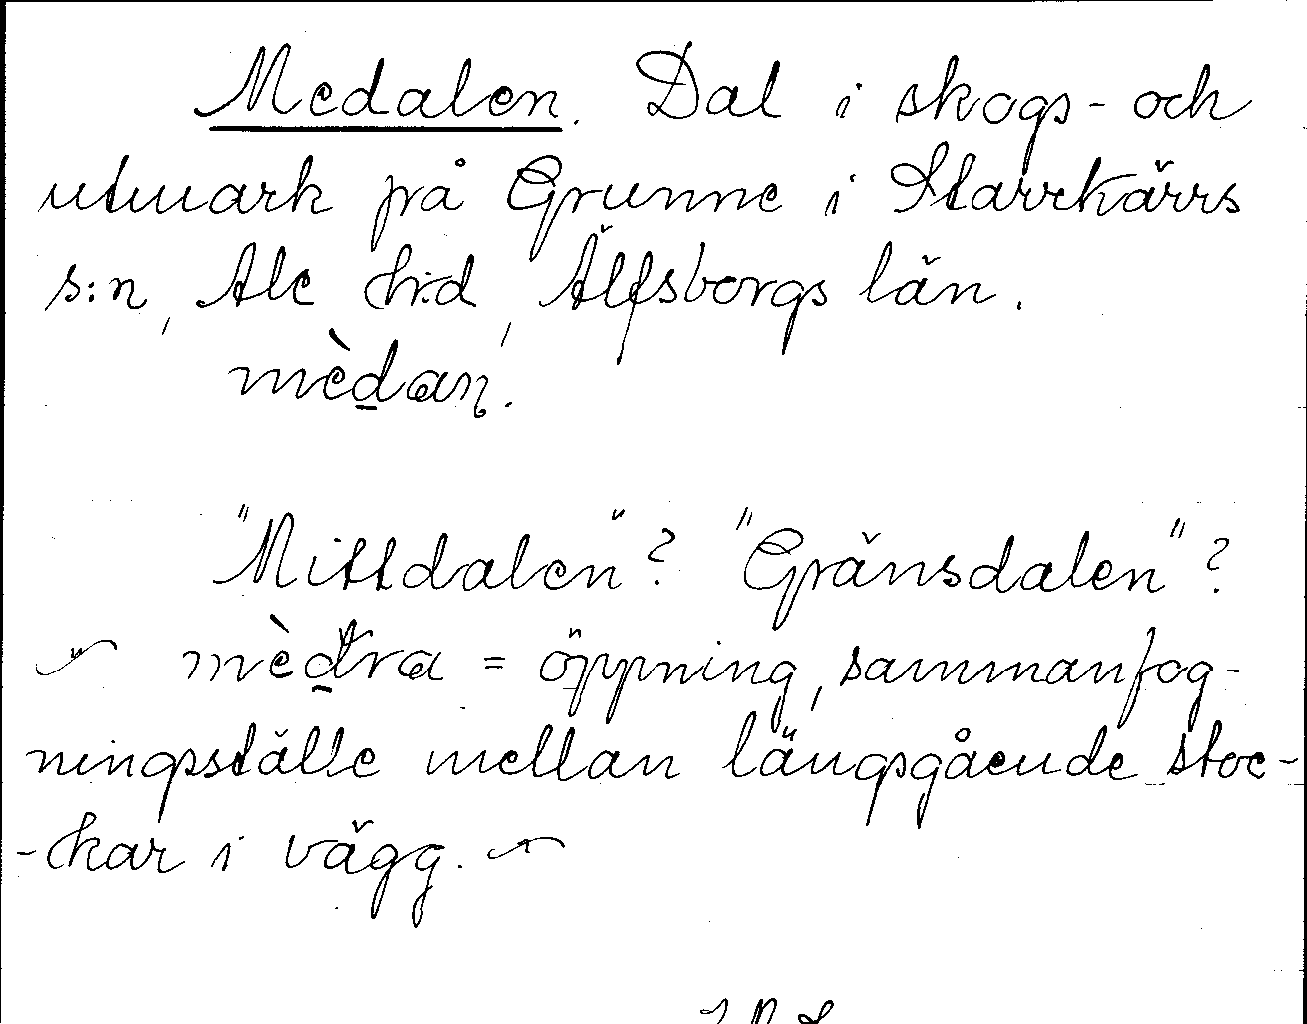 Medalen. Dal i skogs- och
utmark på Grunne i Starrkärrs
s:n, Ale h:d, Älfsborgs län.
mèd̲an.
"Mittdalen"? "Gränsdalen"?
mèd̲ra = öppning, sammanfog-
ningsställe mellan längsgående stoc-
-kar i vägg.